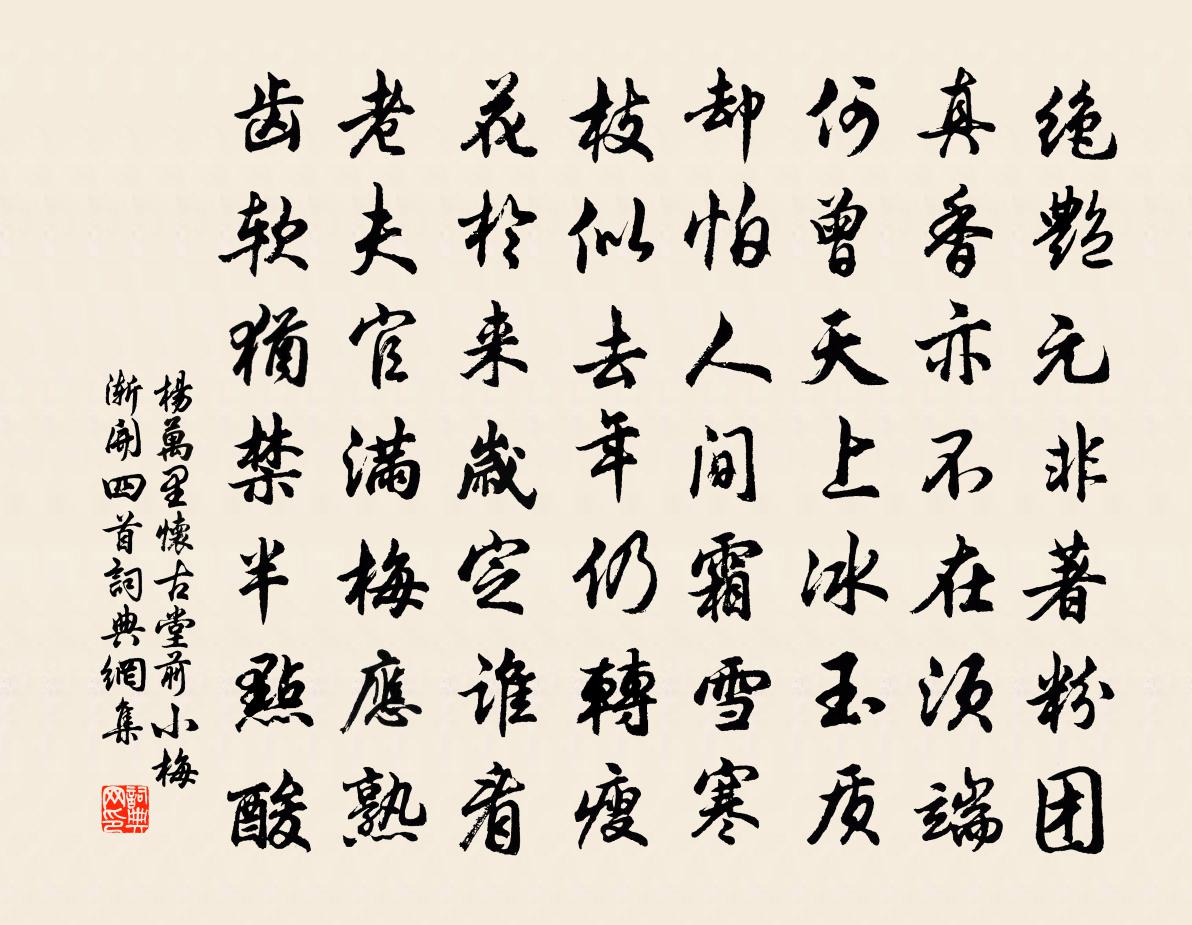 绝艳元非著粉团
真香亦不在须端
何曾天上冰玉质
却怕人间霜雪寒
枝似去年仍轉瘦
花於来歳定谁看
老夫官满梅應熟
齿软猶禁半點酸
楊萬里懷古堂前小梅
渐開四首詞典網集
詞典
网印